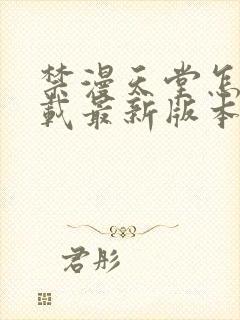 禁漫天堂怎
载最新版本
君彤